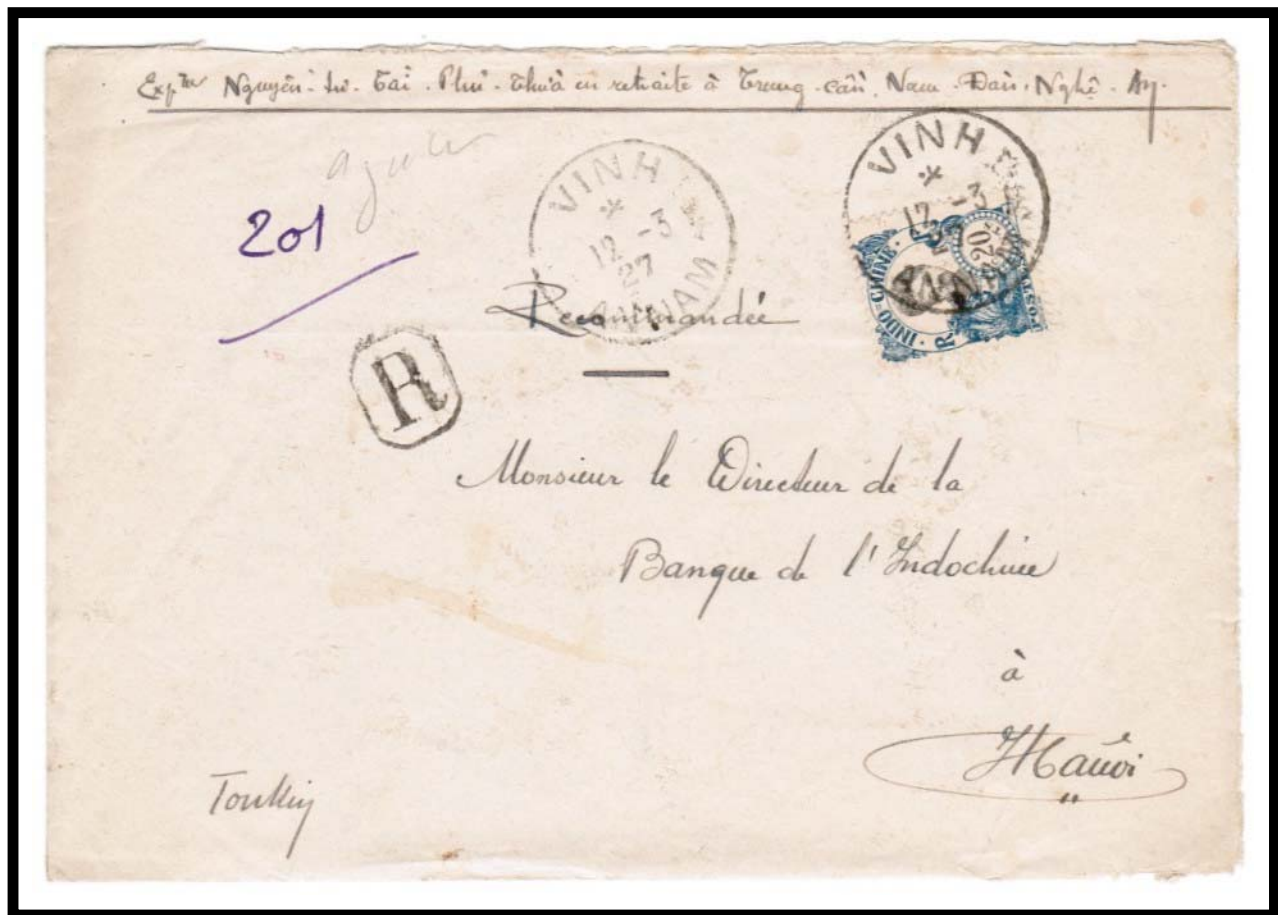 Exp^r Nguyên-tư-Tái. Phu-Thừa en retraite à Trung-cần, Nam-Đàn, Nghệ-An.
201
VINH
12 -3
27
ANNAM
VINH
12 -3
27
ANNAM
INDO-CHINE
R.F
20
POSTES
Recommandée
R
Monsieur le Directeur de la
Banque de l'Indochine
à
Hanoi
Tonkin